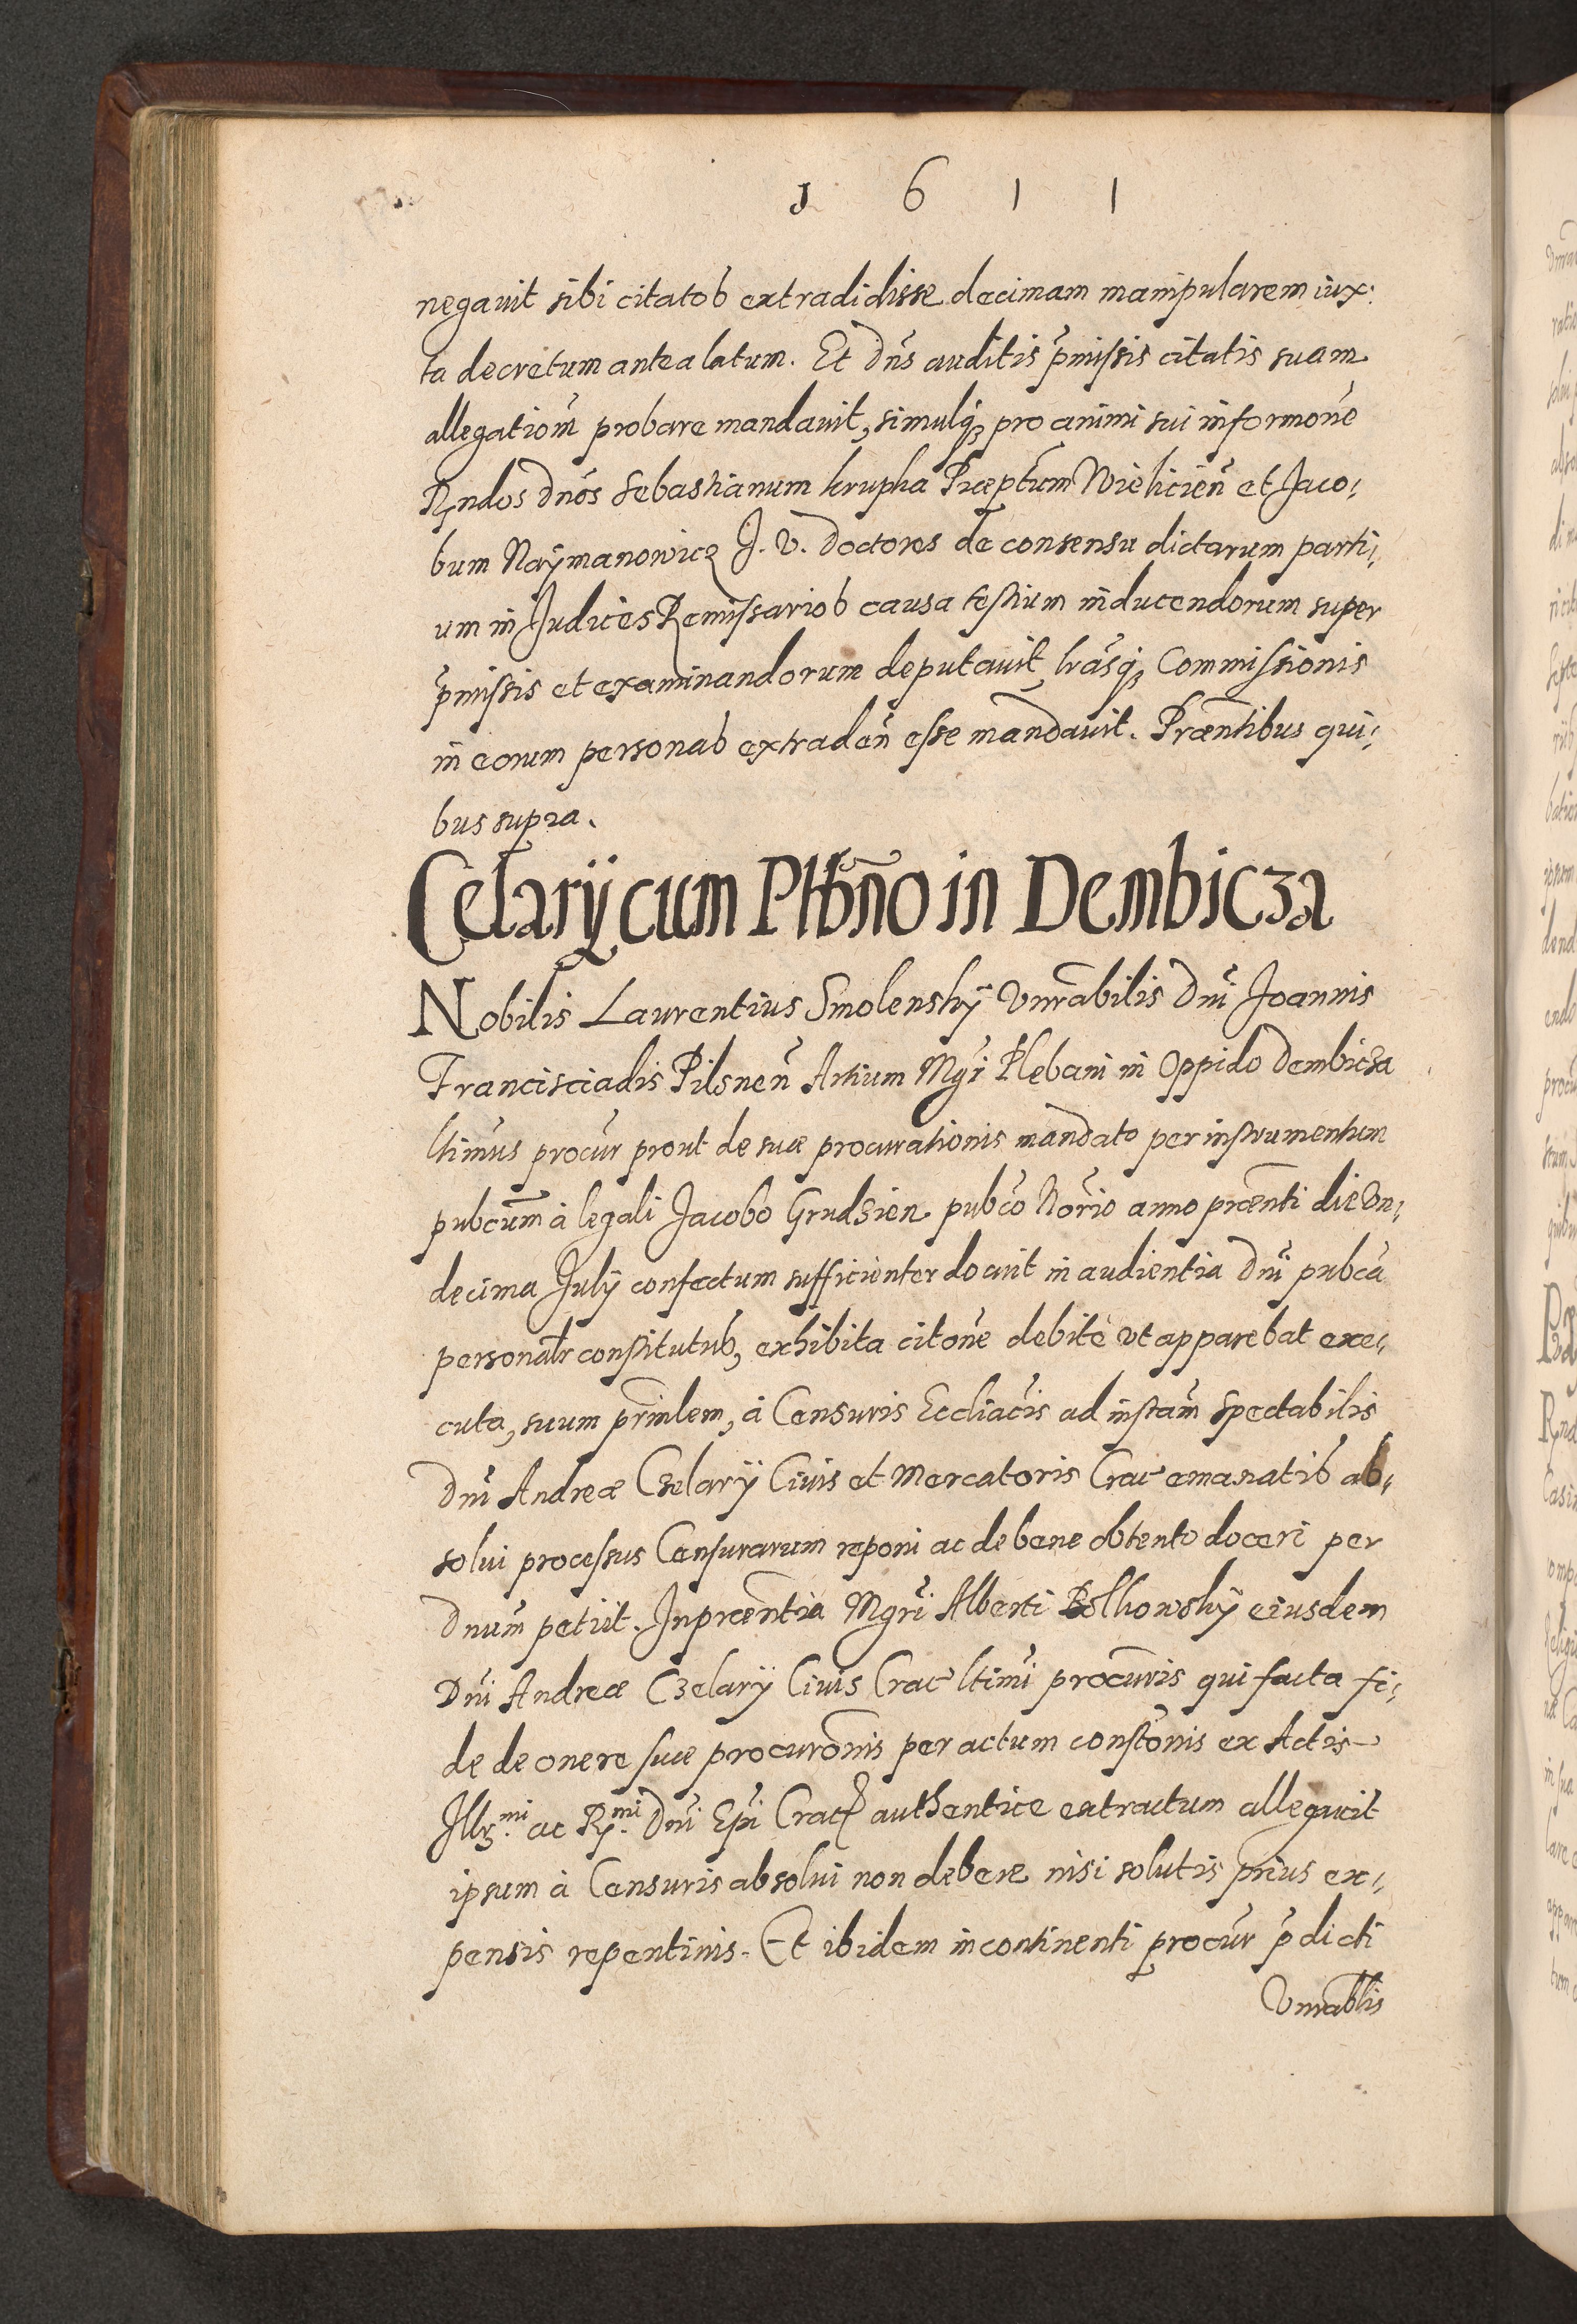 1 6 1 1
negauit sibi citatos extradidisse decimam manipularem iux:
ta decretum antea latum. Et Dns auditis pmissis citatis suam
allegationem probare mandauit, simulq3 pro animi sui informone
Rndos dnos Sebastianum Krupka Præptum Wielicien et Jaco,
bum Naÿmanowicz J. V. Doctores de consensu dictarum parti,
um in Judices Remissarios causa testium inducendorum super
pmissis et examinandorum deputauit, lrasq3 Commissionis
in eorum personas extraden esse mandauit. Præntibus qui,
bus supra.
Celarij cum Pltbno in Dembicza
Nobilis Laurentius Smolenskÿ Vnrabilis Dni Joannis
Francisciadis Pilsnen Artium Mgri Plebani in Oppido Dembicza
ltimus procur prout de suæ procurationis mandato per instrumentum
pubcum à legali Jacobo Grudzien pubco Norio anno prænti die Vn,
decima Julÿ confectum sufficienter docuit in audientia Dni pubca
personalr constitutus, exhibita citone debitè vt apparebat exe,
cuta, suum prinlem, à Censuris Eccliacis ad instam Spectabilis
Dni Andreæ Czelarÿ Ciuis et Mercatoris Crac emanatis ab,
solui processus Censurarum reponi ac de bene obtento doceri per
Dnum petiit. In præntia Mgri Alberti Bolkowskÿ eiusdem
Dni Andreæ Czelarÿ Ciuis Crac ltimi procuris qui facta fi,
de de onere suæ procuronis per actum constonis ex Actis
Illr.mi ac R.mi Dni Epi Crac authentice extractum allegauit
ipsum à Censuris absolui non debere nisi solutis prius ex,
pensis repentinis. Et ibidem incontinenti procur pdicti
Vnrablis